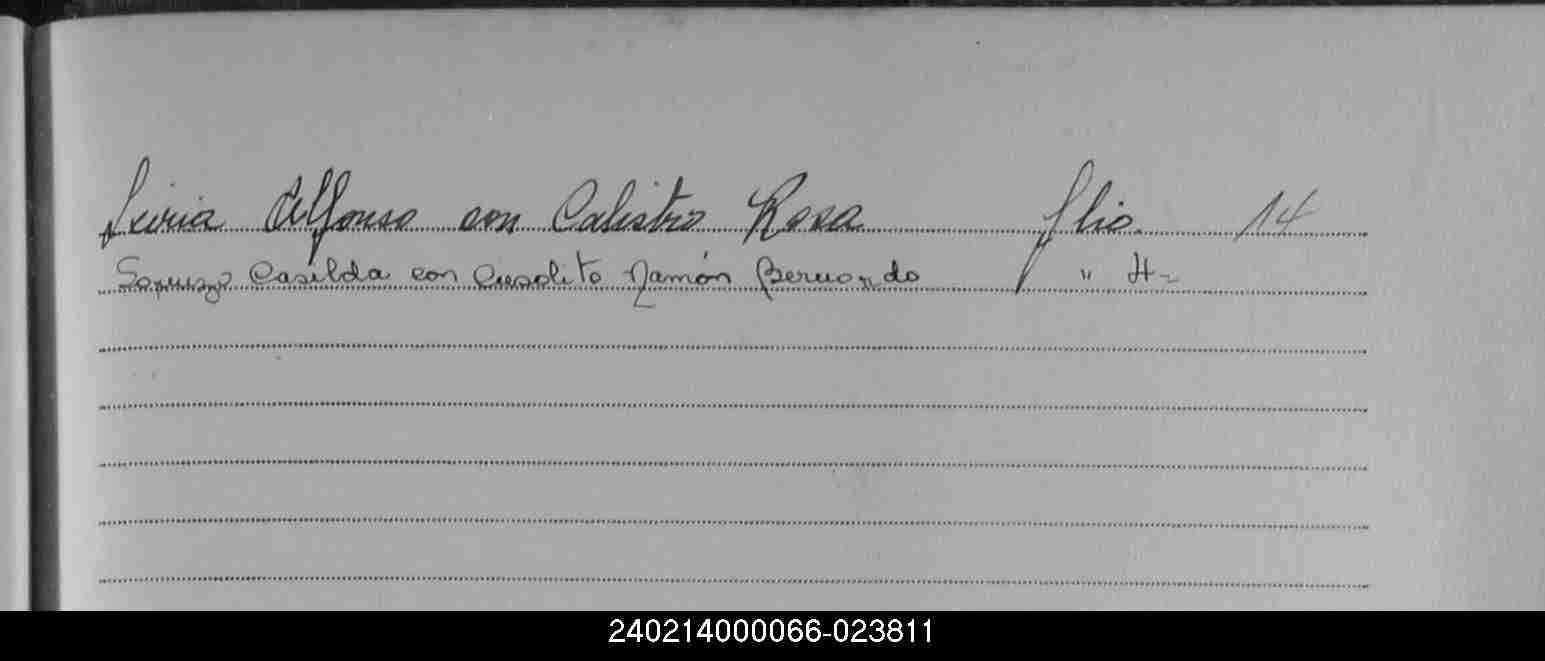 Leiria Alfonso con Calistro Rosa flio. 14
Casilda con Cresolito Ramón Bernardo " H-
240214000066-023811